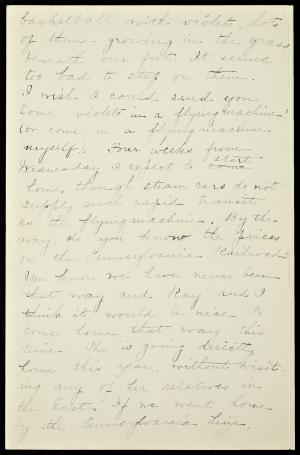 basketball with violets, lots
of them - growing in the grass
beneath our feet. It seems
too bad to step on them.
I wish I could send you
some violets in a flying machine!
(or come in a flying machine
myself). Four weeks from
Wednesday I expect to start
home, though steam cars do not
supply such rapid transit
as the flying machine. By the
way do you know the prices
on the Pennsylvania Railroad?
You know we have never been
that way and Kay and I
think it would be nice to
come home that way this
time. She is going directly
home this year, without visit-
ing any of her relatives in
the East. If we went home
by the Pennsylvania line,